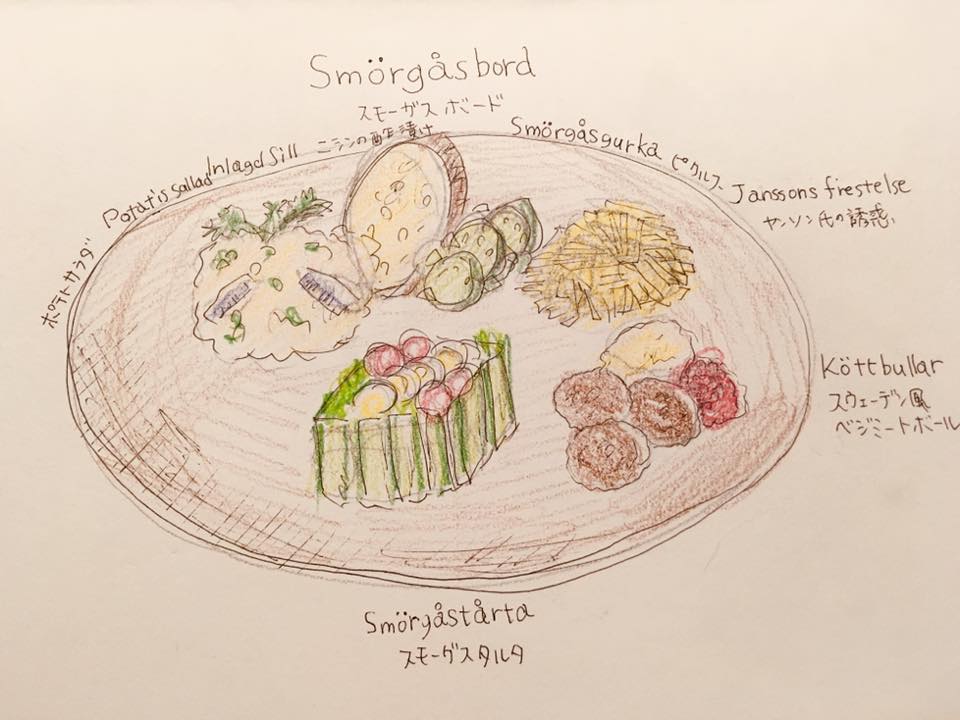 Smörgåsbord
スモーガスボード
Inlagd Sill ニシンの酢漬け
Smörgåsgurka ピクルス
Potatis sallad
ポテトサラダ
Janssons frestelse
ヤンソン氏の誘惑
Köttbullar
スウェーデン風
ベジミートボール
Smörgåstårta
スモーガスタルタ